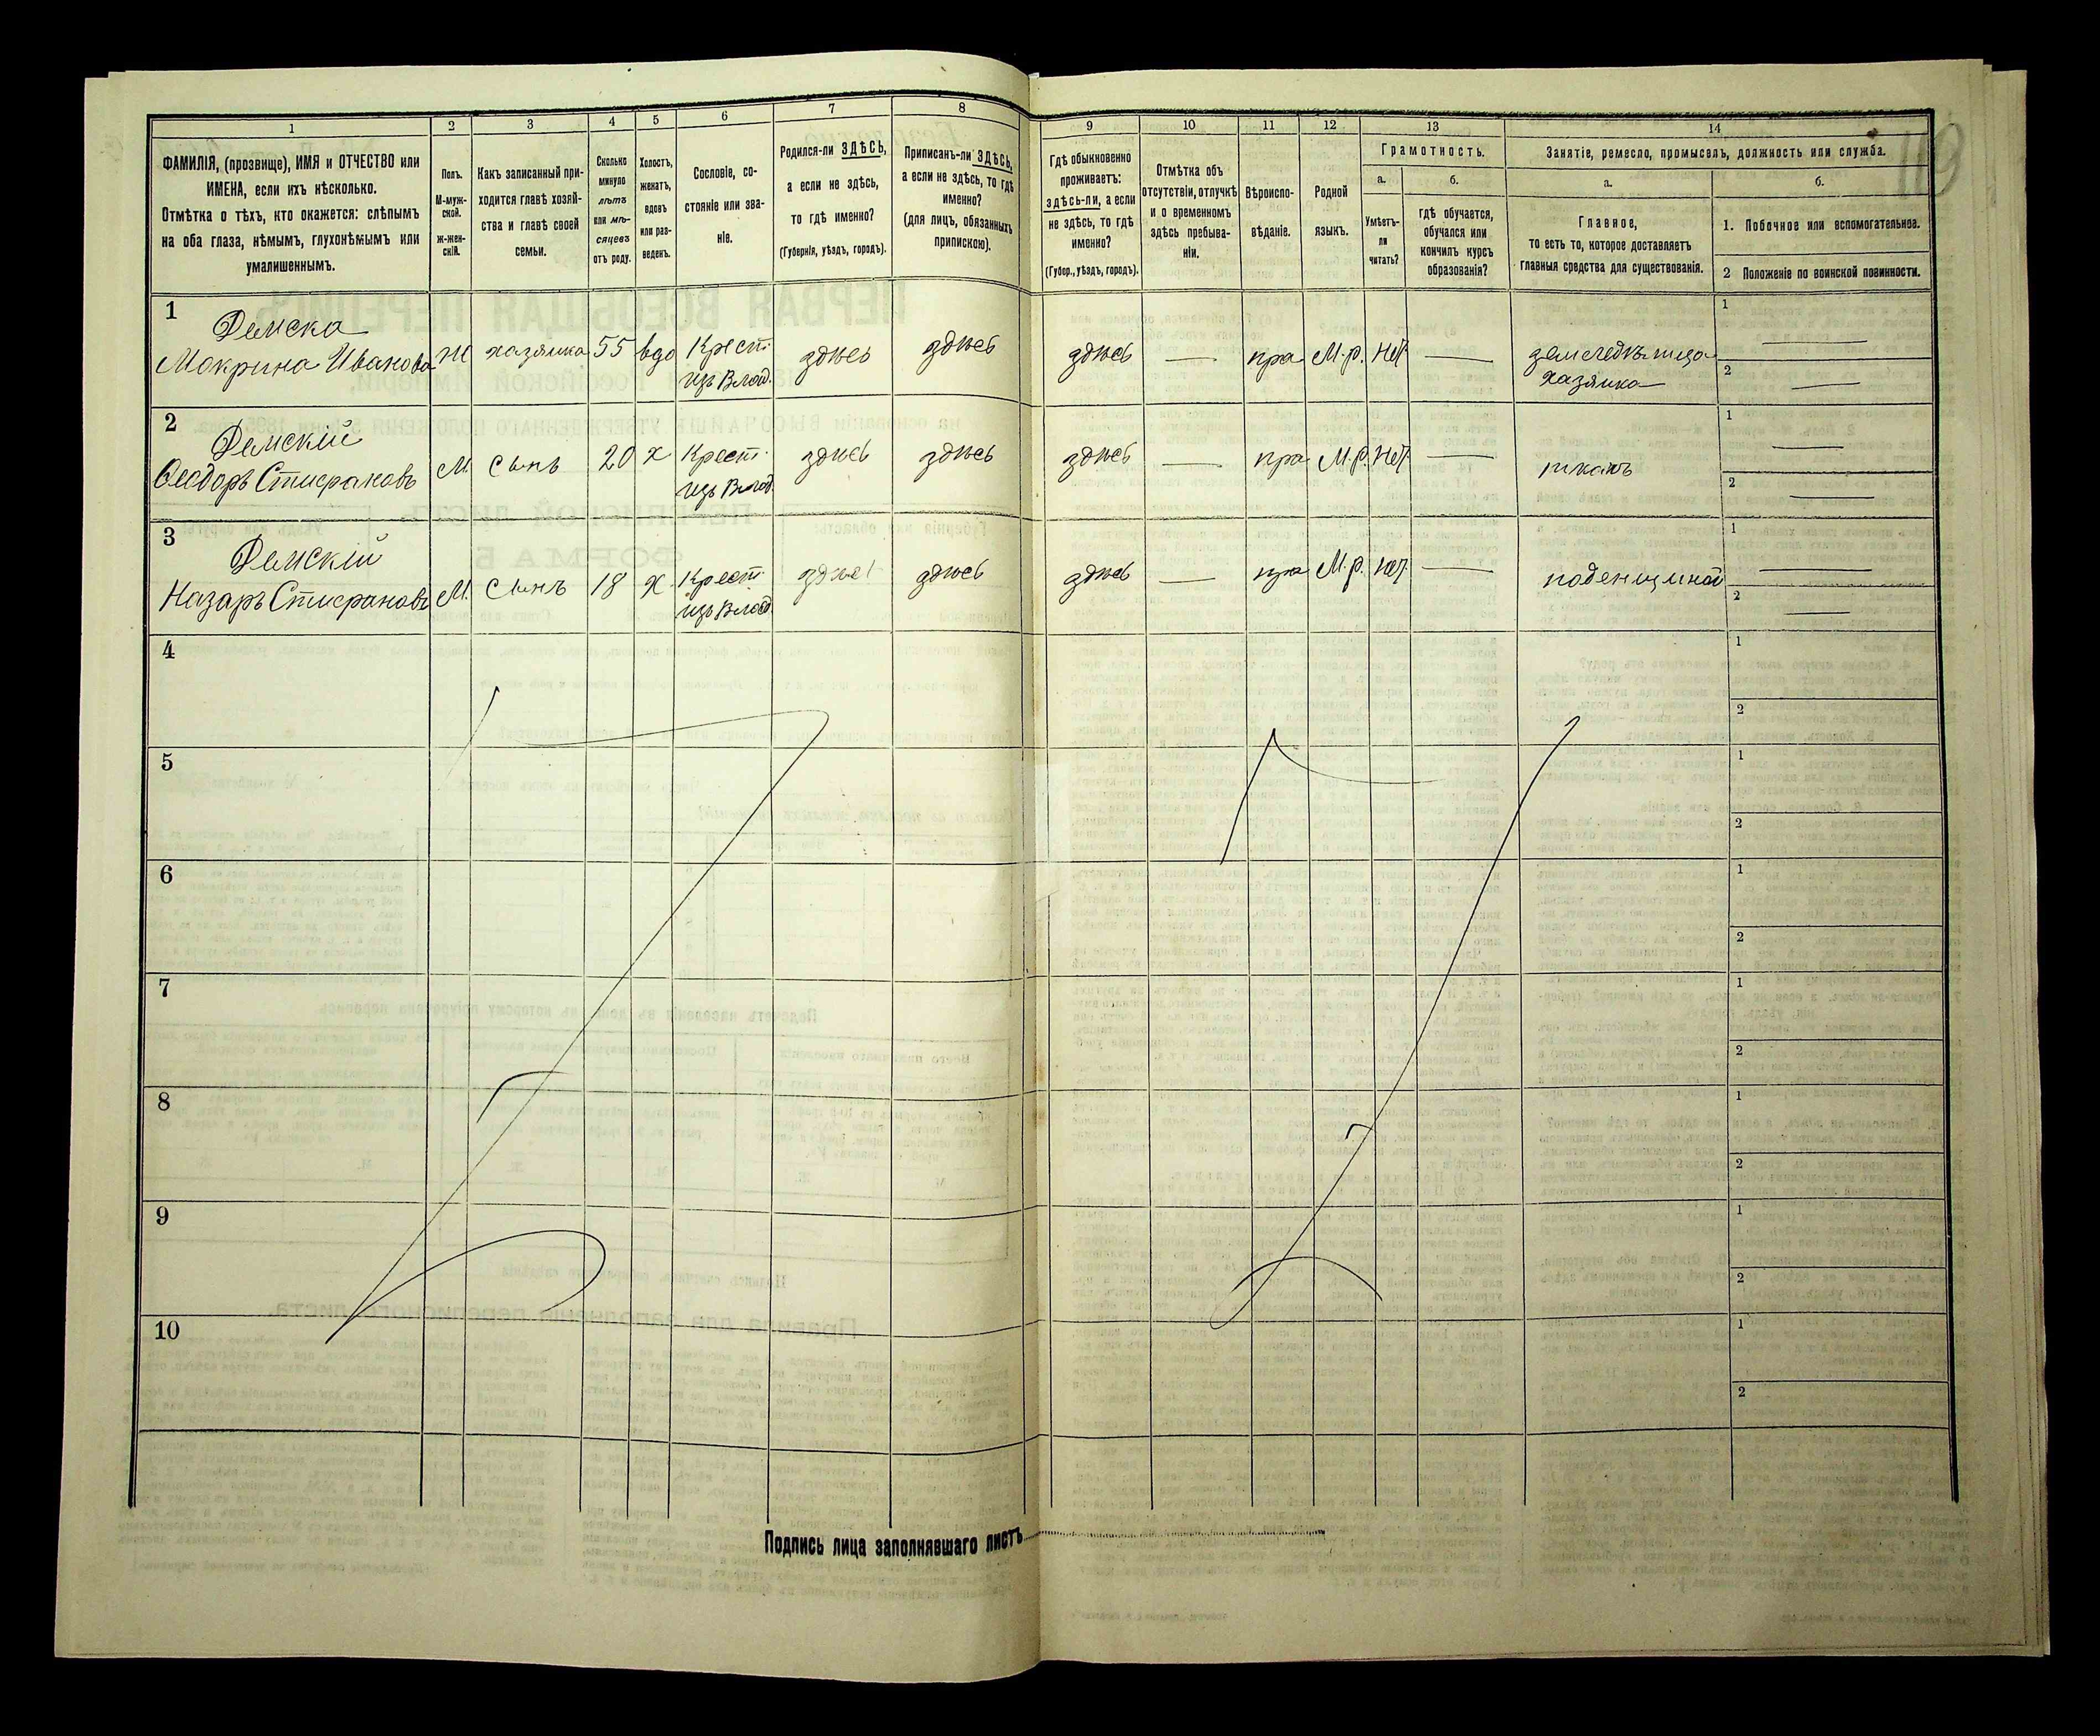 1
2
3
4
5
6
7
8
ФАМИЛІЯ, (прозвище), ИМЯ и ОТЧЕСТВО или
ИМЕНА, если ихъ нѣсколько.
Отмѣтка о тѣхъ, кто окажется: слѣпымъ
на оба глаза, нѣмымъ, глухонѣмымъ или
умалишеннымъ.
Полъ.
М-муж-
ской.
ж-жен-
скій.
Какъ записанный при-
ходится главѣ хозяй-
ства и главѣ своей
семьи.
Сколько
минуло
лѣтъ
или мѣ-
сяцевъ
отъ роду.
Холостъ,
женатъ,
вдовъ
или раз-
веденъ.
Сословіе, со-
стояніе или зва-
ніе.
Родился-ли ЗДѢСЬ,
а если не здѣсь,
то гдѣ именно?
(Губернія, уѣздъ, городъ).
Приписанъ-ли ЗДѢСЬ,
а если не здѣсь, то гдѣ
именно?
(для лицъ, обязанныхъ
припискою).
9
10
11
12
13
14
Гдѣ обыкновенно
проживаетъ:
здѣсь-ли, а если
не здѣсь, то гдѣ
именно?
(Губер., уѣздъ, городъ).
Отмѣтка объ
отсутствіи, отлучкѣ
и о временномъ
здѣсь пребыва-
ніи.
Вѣроиспо-
вѣданіе.
Родной
языкъ.
Грамотность.
а.
б.
Умѣетъ-
ли
читать?
гдѣ обучается,
обучался или
кончилъ курсъ
образованія?
Занятіе, ремесло, промыселъ, должность или служба.
а.
б.
Главное,
то есть то, которое доставляетъ
главныя средства для существованія.
1. Побочное или вспомогательное.
2 Положеніе по воинской повинности.
1
Демска
Макрина Иванова
Ж
хазяика
55
вдо
Крест.
изъ Влад.
здѣсь
здѣсь
здѣсь
пра
М.р.
Нѣт
хазяика
1
2
2
Демскій
Ѳеодоръ
М.
Сынъ
20
х
Крест.
изъ Влад.
здѣсь
здѣсь
здѣсь
пра
М.р.
Нѣт
ткачъ
1
2
3
Демскій
Назаръ
М.
Сынъ
18
х
Крест
изъ Влад.
здѣсь
здѣсь
здѣсь
пра
М.р.
нѣт
поденщикъ
1
2
4
1
2
5
1
2
6
1
2
7
1
2
8
1
2
9
1
2
10
1
2
Подпись лица заполнявшаго листъ